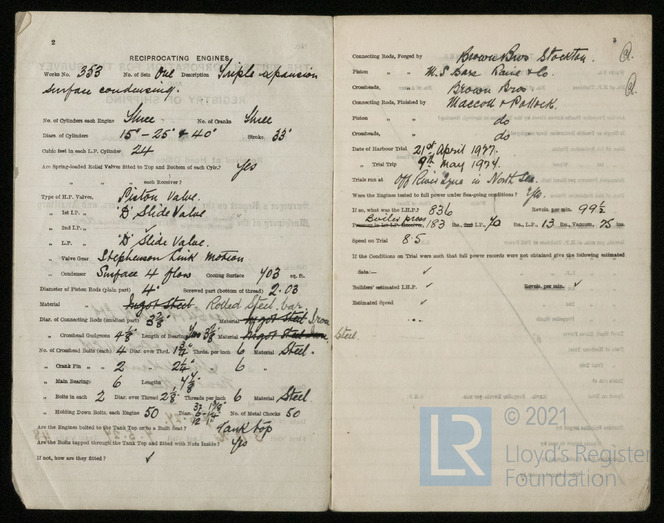 2
RECIPROCATING ENGINES.
Works No. 353 No. of Sets One Description Triple expansion
surface condensing.
No. of Cylinders each Engine Three No. of Cranks Three
Diars. of Cylinders 15" - 25" & 40" Stroke 33"
Cubic feet in each L.P. Cylinder 24
Are Spring-loaded Relief Valves fitted to Top and Bottom of each Cylr.? Yes
" " each Receiver?
Type of H.P. Valves, Piston Valve.
" 1st I.P. " "D" Slide Valve
" 2nd I.P. " ✓
" L.P. " "D" Slide Valve.
" Valve Gear Stephenson Link Motion
" Condenser Surface 4 flow Cooling Surface 703 sq. ft.
Diameter of Piston Rods (plain part) 4" Screwed part (bottom of thread) 2.03
Material Ingot Steel. Rolled Steel bar.
Diar. of Connecting Rods (smallest part) Material Ingot Steel Iron
" Crosshead Gudgeons 4⅛" Length of Bearing Material Ingot Steel Steel.
No. of Crosshead Bolts (each) 4 Diar. over Thrd. 1¾" Thrds. per inch 6 Material Steel.
" Crank Pin " " 2 " 2¼" " 6 "
" Main Bearings 6 Lengths
" Bolts in each 2 Diar. over Thread 2⅛" Threads per inch 6 Material Steel
" Holding Down Bolts, each Engine 50 Diar. No. of Metal Chocks 50
Are the Engines bolted to the Tank Top or to a Built Seat? Tank top
Are the Bolts tapped through the Tank Top and fitted with Nuts Inside? Yes
If not, how are they fitted? ✓
3
Connecting Rods, Forged by Brown Bros Stockton.
Piston " " W. S. Raine & Co.
Crossheads, " " Brown Bros
Connecting Rods, Finished by Maccoll & Pollock.
Piston " " do
Crossheads, " " do
Date of Harbour Trial 21st April
" Trial Trip 9th May 1924.
Trials run at Off River Tyne in North Sea.
Were the Engines tested to full power under Sea-going conditions? Yes.
If so, what was the I.H.P.? 836 Revols. per min. 99½
Boiler pres
Pressure in 1st I.P. Receiver, 183 lbs., 2nd I.P., 70 lbs., L.P., 13 lbs., Vacuum, 25 ins.
Speed on Trial 8.5
If the Conditions on Trial were such that full power records were not obtained give the following estimated
data:— ✓
Builders' estimated I.H.P. ✓ Revols. per min. ✓
Estimated Speed ✓
LR
© 2021
Lloyd's Register
Foundation